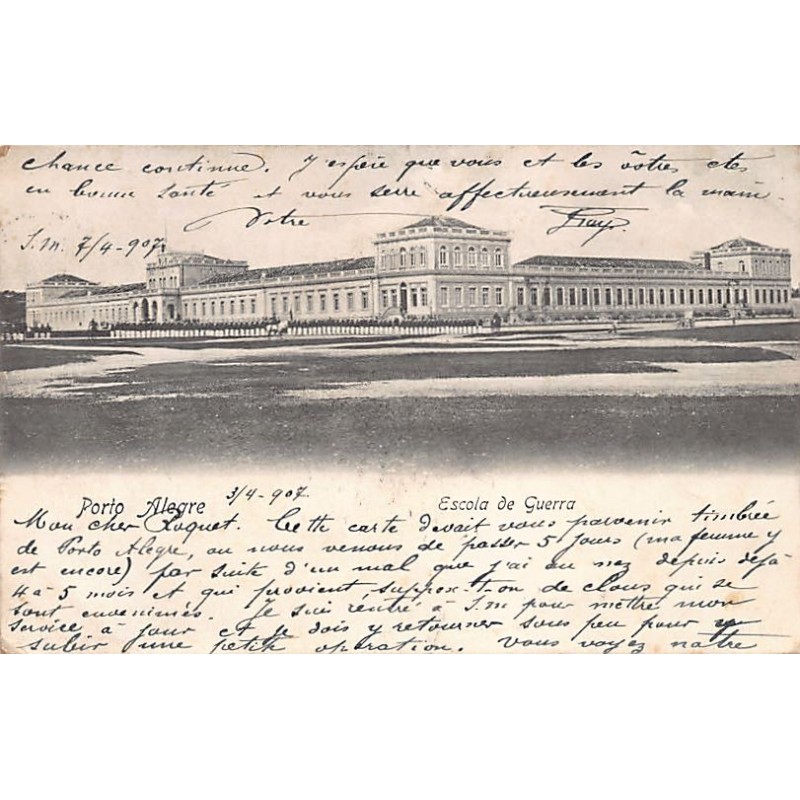 chance continue. J'espère que vous et les vôtres êtes
en bonne santé et vous serre affectueusement la main.
Votre
S.M. 7/4-907
Porto Alegre 3/4-907. Escola de Guerra
Mon cher Roquet. Cette carte devait vous parvenir timbrée
de Porto Alegre, où nous venons de passer 5 jours (ma femme y
est encore) par suite d'un mal que j'ai au nez depuis déjà
4 à 5 mois et qui provient, suppose-t-on de clous qui se
sont envenimés. Je suis rentré à S.M pour mettre mon
service à jour et je dois y retourner sous peu pour y
subir une petite opération. Vous voyez notre